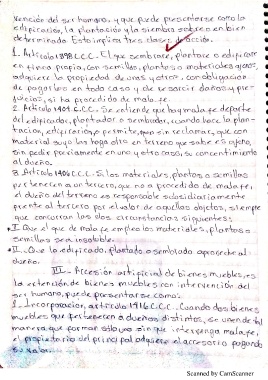 vención del ser humano, y que puede presentarse como la
edificación, la plantación y la siembra sobre en bien
determinado. Esto implica tres clases de acción.
1. Artículo 1898 C.C.C. El que siembre, plantare o edificare
en finca propia, con semillas, plantas o materiales ajenos,
adquiere la propiedad de unas y otros, con obligación
de pagarlos en todo caso y de resarcir daños y per-
juicios, si ha procedido de mala fe.
2. Artículo C.C.C. Se entiende que hay mala fe de parte
del edificador, plantador o sembrador, cuando hace la plan-
tación, edificación o permite, que sin reclamar, que con
material suyo las haga otro en terreno que sabe es ajeno,
sin pedir previamente en uno y otro caso, su consentimiento
al dueño.
3. Artículo C.C.C. Si los materiales, plantas o semillas
pertenecen a un tercero, que no a procedido de mala fe,
el dueño del terreno es responsable subsidiariamente
frente al tercero por el valor de aquellos objetos, siempre
que concurran las dos circunstancias siguientes:
I. Que el que de mala fe empleo los materiales, plantas o
semillas sea insolvente.
II. Que lo edificado, plantado o sembrado aproveche al
dueño.
III. Accesión artificial de bienes muebles, es
la extención de bienes muebles con intervención del
ser humano, puede presentarse como:
1. Incorporación, artículo 1916 C.C.C. Cuando dos bienes
muebles que pertenecen a dueños distintos, se unen de tal
manera que forman sólo uno sin que intervenga mala fe,
el propietario del principal adquiere el accesorio pagando
su valor.
Scanned by CamScanner